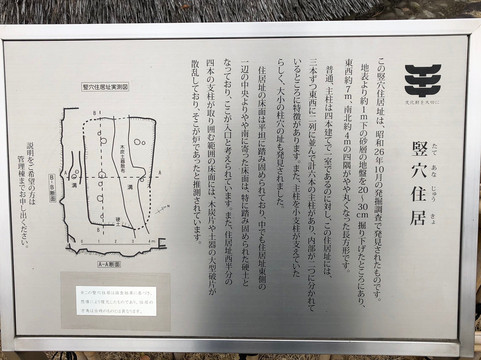 文化財を大切に
竪穴住居
たて あな じゅう きょ
この竪穴住居址は、昭和26年10月の発掘調査で発見されたものです。
地表より約1m下の砂層の地盤を20〜30cm掘り下げたところにあり、
東西約7m、南北約4mの四隅がやや丸くなった長方形です。
普通、主柱は四本建てで一室であるのに対し、この住居址には、
三本ずつ東西に二列に並んで計六本の主柱があり、内部が二つに分かれて
いるところに特徴があります。また、主柱を小支柱が支えていた
らしく、大小の柱穴の址も発見されました。
住居址の床面は平坦に踏み固められており、中でも住居址東側の
一辺の中央よりやや南に寄った床面は、特に踏み固められた硬土と
なっており、ここが入口と考えられています。また、住居址西半分の
四本の支柱が取り囲む範囲の床面には、木炭片や土器の大型破片が
散乱しており、そこが炉であったと推測されています。
竪穴住居址実測図
B
木炭と器散布
溝
溝
A
A
硬土
B
B-B断面
A-A断面
説明をご希望の方は
管理棟までお申し出ください。